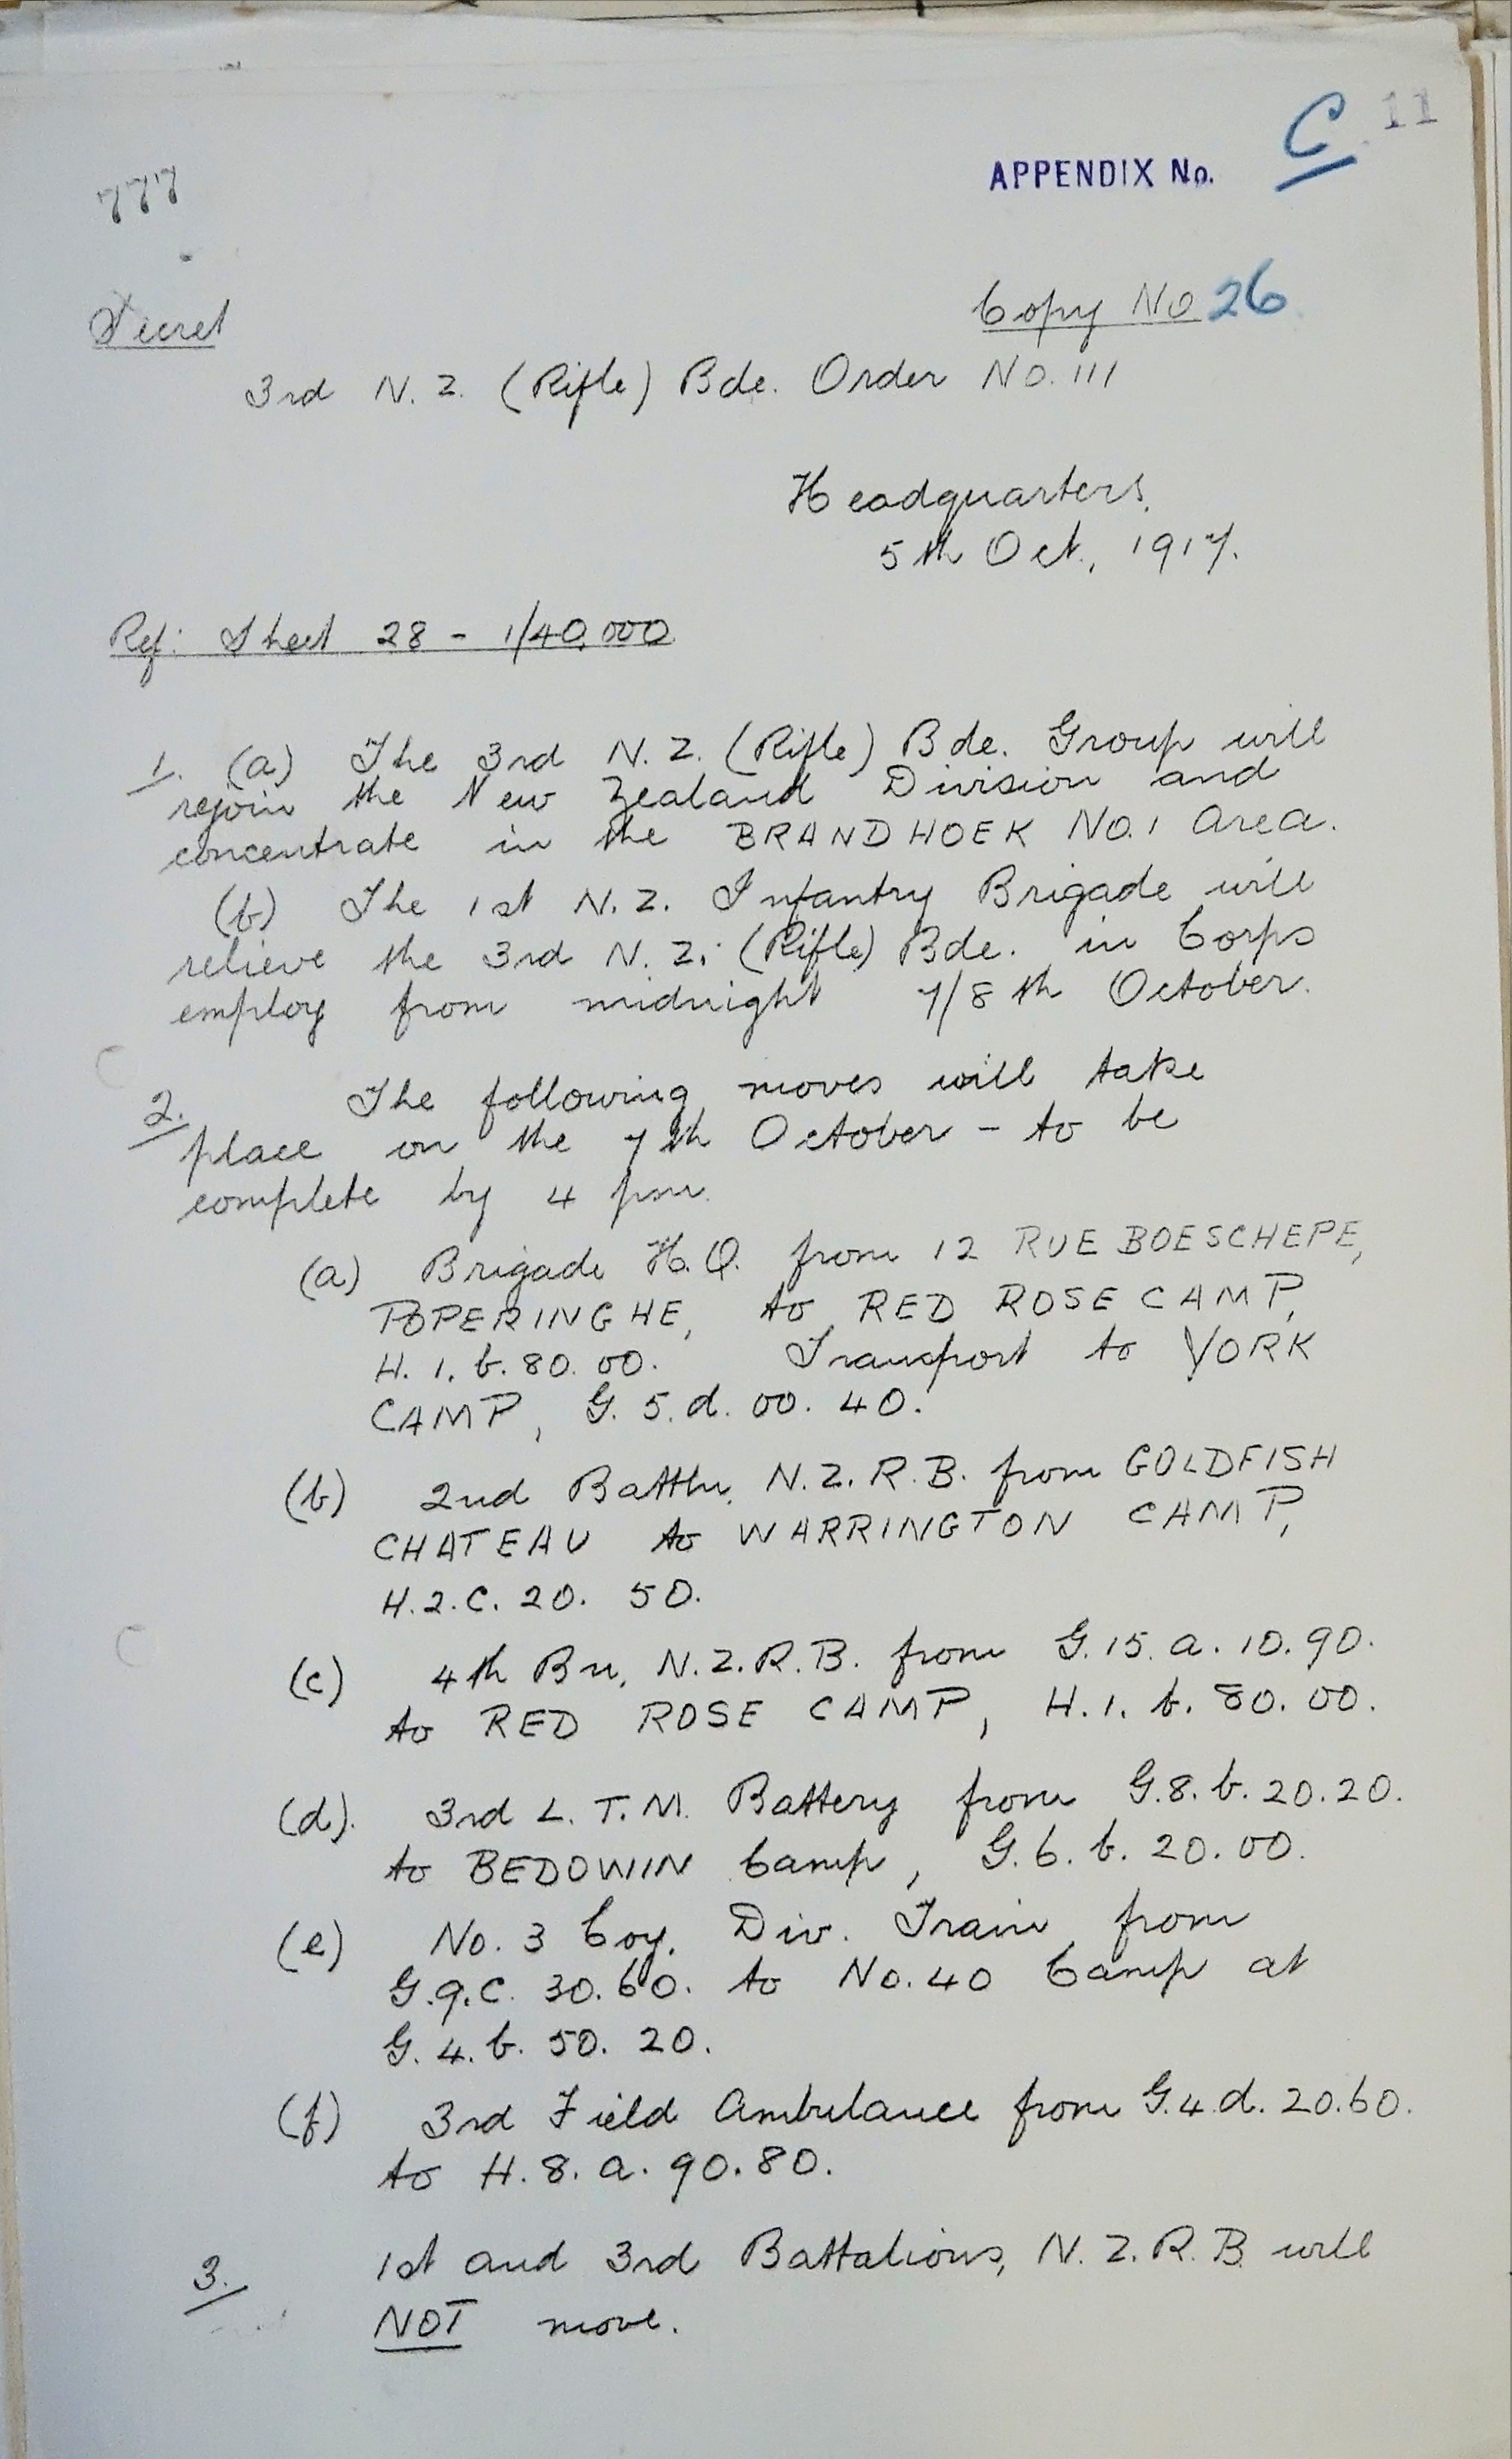 C 11
APPENDIX No.
777
Copy No 26
Secret
3rd N.Z. (Rifle) Bde. Order No. 111
Headquarters,
5th Oct., 1917.
Ref: Sheet 28 - 1/40,000
1. (a) The 3rd N.Z. (Rifle) Bde. Group will
rejoin the New Zealand Division and
concentrate in the BRANDHOEK No.1 Area.
(b) The 1st N.Z. Infantry Brigade will
relieve the 3rd N.Z. (Rifle) Bde. in Corps
employ from midnight 7/8th October.
2. The following moves will take
place on the 7th October - to be
complete by 4 pm.
(a) Brigade H.Q. from 12 RUE BOESCHEPE,
POPERINGHE, to RED ROSE CAMP,
H. 1. b. 80. 00. Transport to YORK
CAMP, G. 5. d. 00. 40.
(b) 2nd Battln, N.Z.R.B. from GOLDFISH
CHATEAU to WARRINGTON CAMP,
H.2.C. 20. 50.
(c) 4th Bn, N.Z.R.B. from G.15.a.10.90.
to RED ROSE CAMP, H.1.b.80.00.
(d). 3rd L.T.M. Battery from G.8.b.20.20.
to BEDOWIN Camp, G.6.b.20.00.
(e) No. 3 Coy. Div. Train from
G.9.C. 30.60. to No. 40 Camp at
G.4.b. 50. 20.
(f) 3rd Field Ambulance from G.4.d.20.60.
to H.8.a.90.80.
3. 1st and 3rd Battalions, N.Z.R.B will
NOT move.